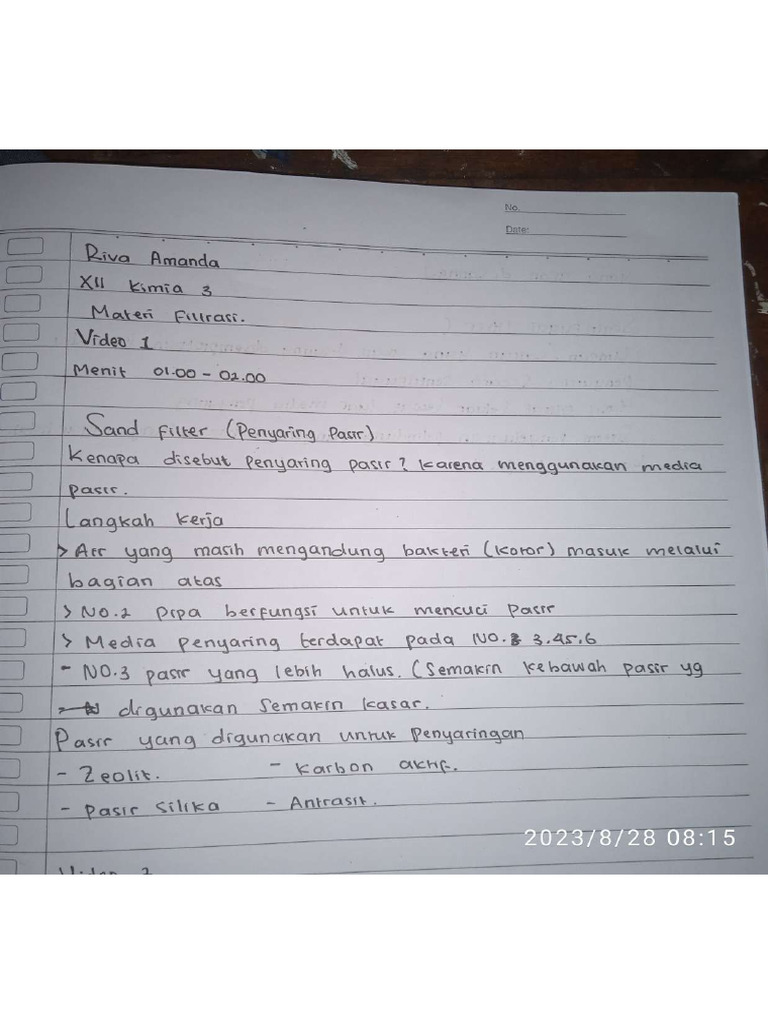 No.
Date:
Riva Amanda
XII Kimia 3
Materi Filtrasi.
Video 1
Menit 01.00 - 02.00
Sand filter (Penyaring Pasir)
Kenapa disebut penyaring pasir? Karena menggunakan media
pasir.
Langkah kerja
> Air yang masih mengandung bakteri (kotor) masuk melalui
bagian atas
> NO.2 Pipa berfungsi untuk mencuci Pasir
> Media penyaring terdapat pada NO. 3.45.6
- NO.3 pasir yang lebih halus. (Semakin kebawah pasir yg
digunakan Semakin kasar.
Pasir yang digunakan untuk Penyaringan
- Zeolit. - Karbon aktif.
- Pasir Silika - Antrasit.
2023/8/28 08:15